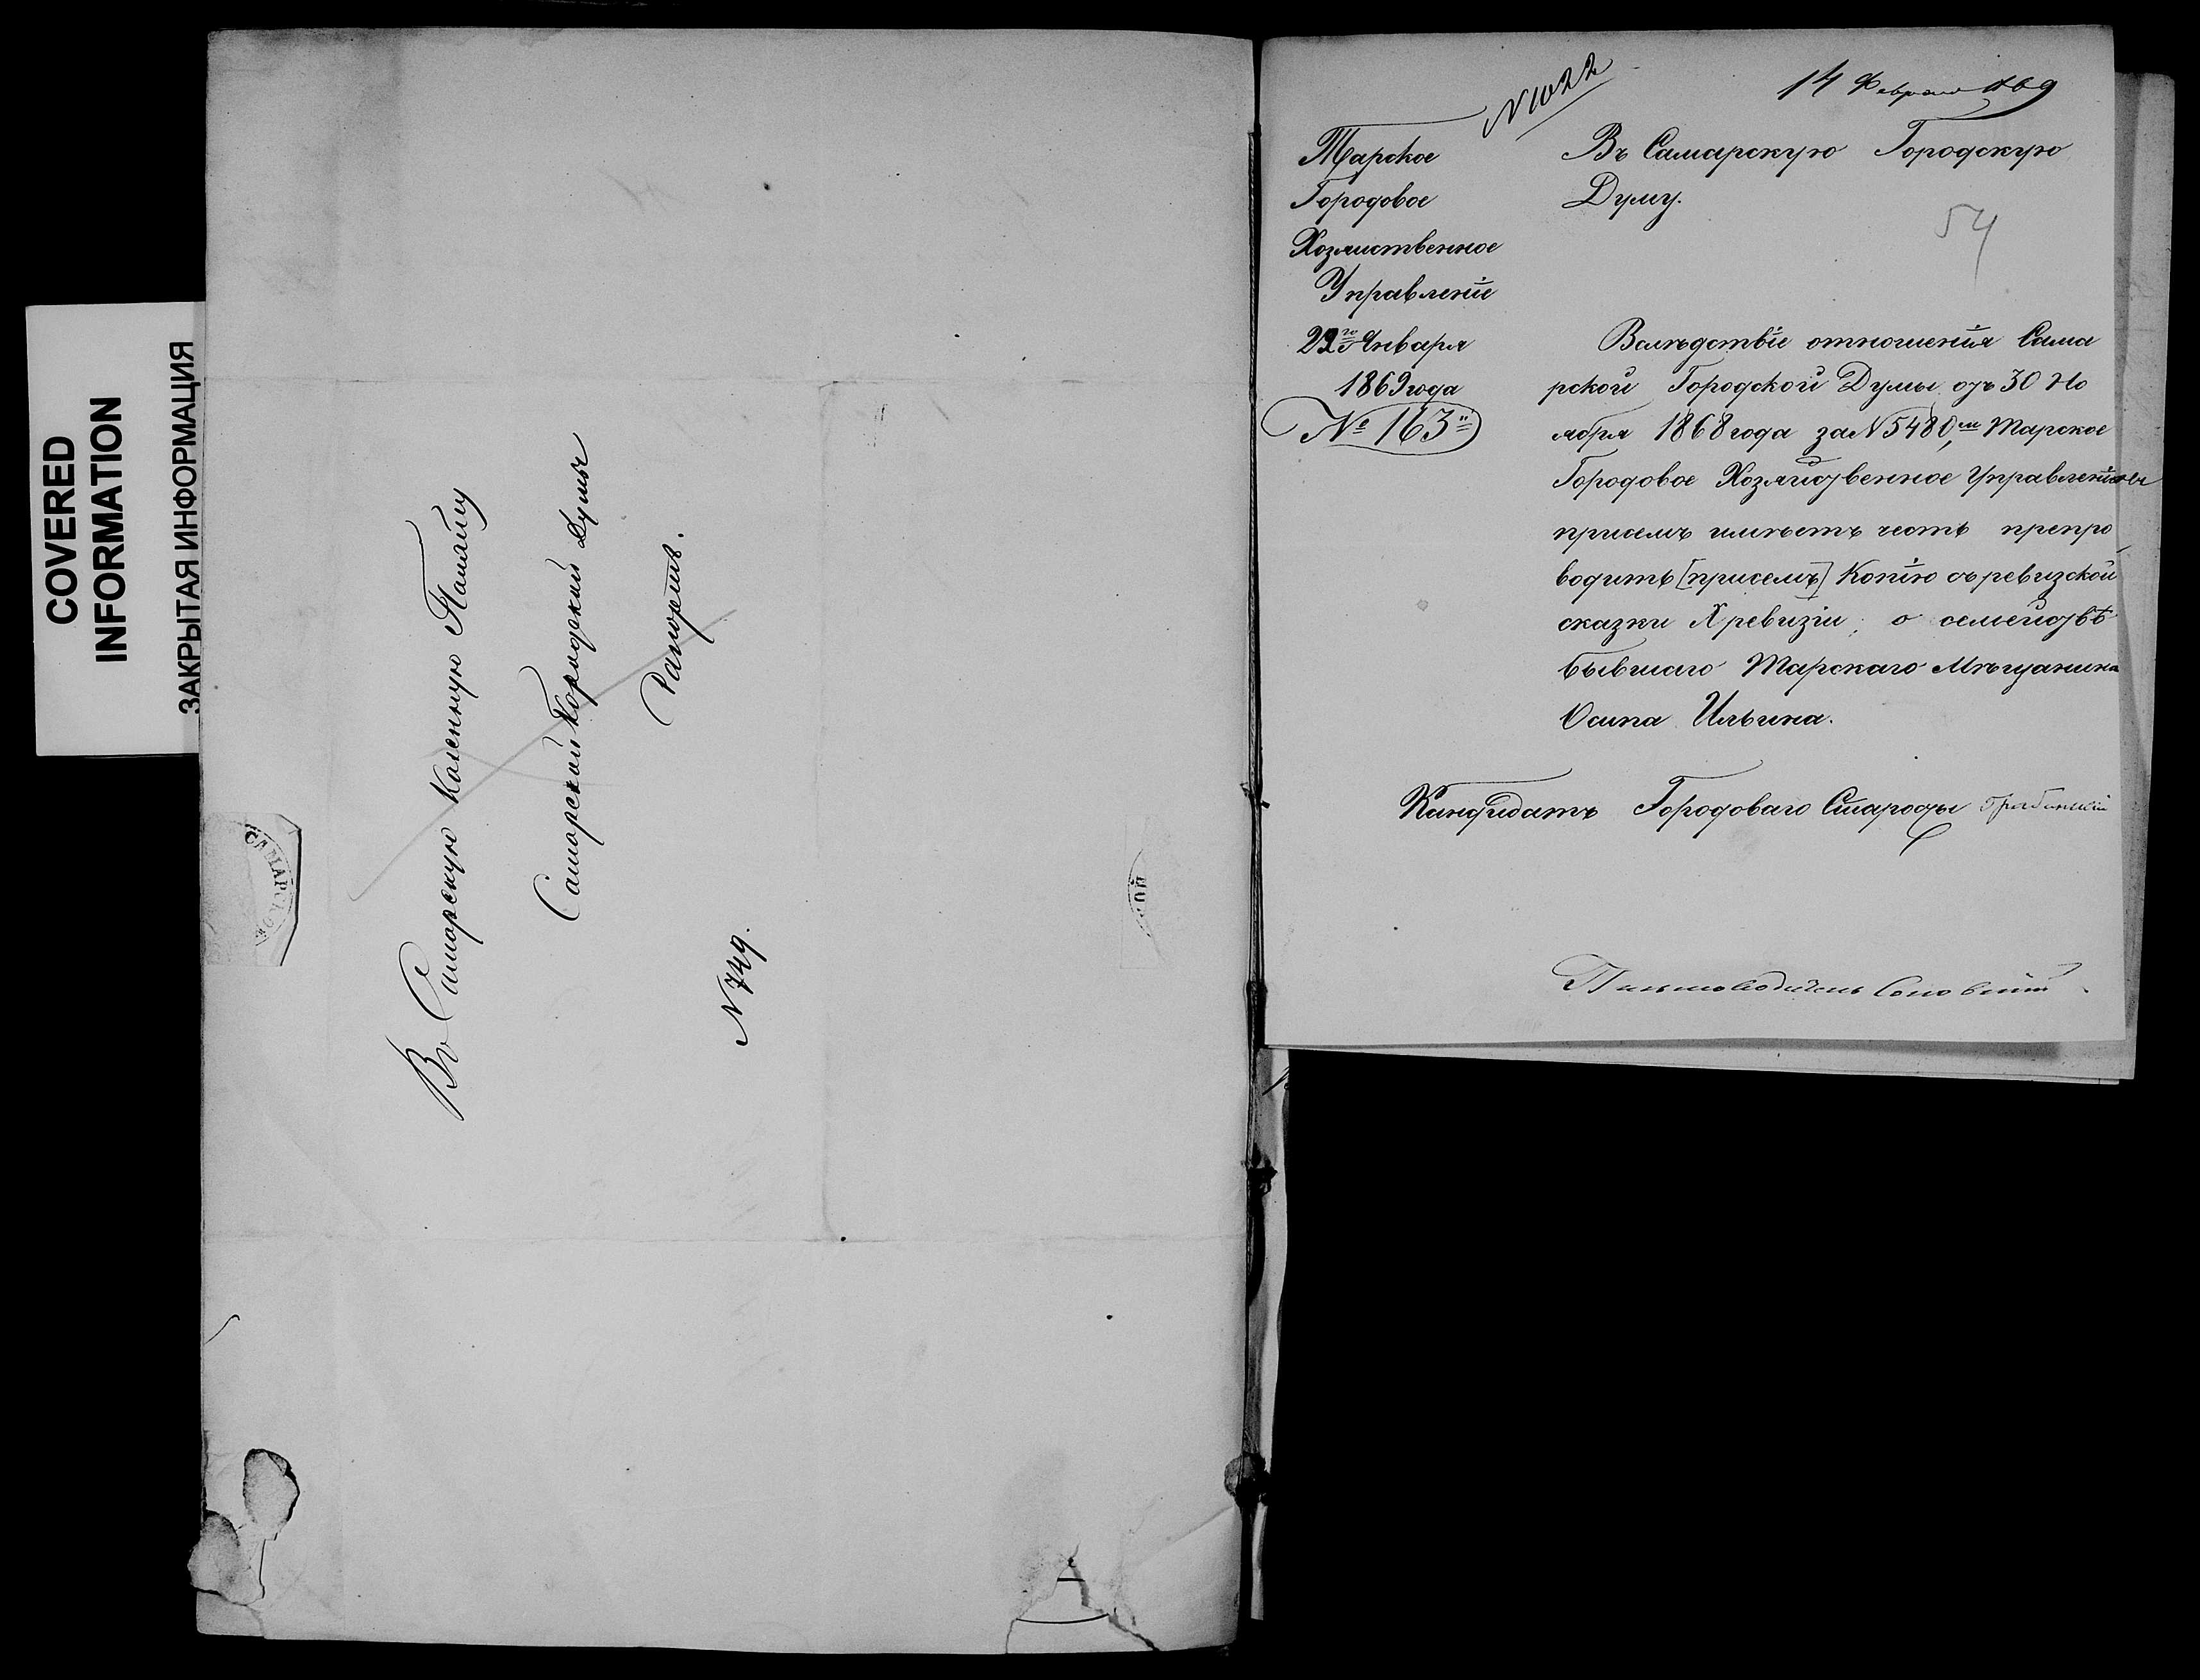 COVERED
INFORMATION
ЗАКРЫТАЯ ИНФОРМАЦИЯ
Въ Самарскую Казенную Палату
Самарской Городской Думы
Рапортъ.
N 749.
САМАРСКОЙ
N 1022
14 Февраля 1869
Тарское
Городовое
Хозяиственное
Управленіе
22го Января
1869 года
№ 163й
Въ Самарскую Городскую
Думу.
54
Вслѣдствіе отношенія Сама
рской Городской Думы отъ 30 Но
ября 1868 года за N 5480, Тарское
Городовое Хозяйственное Управленіе
присемъ имѣетъ честь препро
водить [присемъ] Копію съ ревизской
сказки X ревизіи, о семействѣ
бывшаго Тарскаго Мѣщанина
Осипа Ильина.
Кандидатъ Городоваго Старосты
Письмоводитель